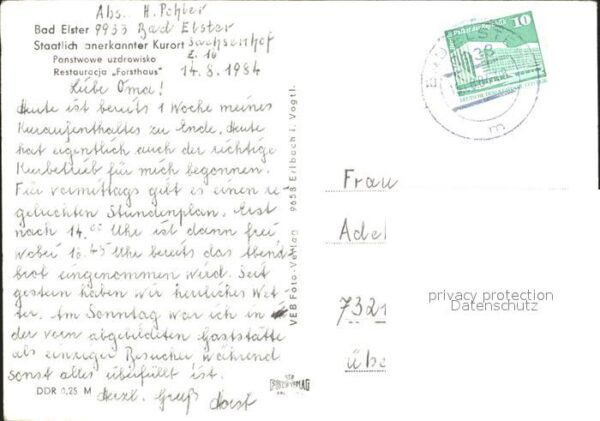 Abs. H. Pöhler
9933 Bad Elster
Bad Elster
Staatlich anerkannter Kurort
Sachsenhof
Z. 16
Państwowe uzdrowisko
Restauracja „Forsthaus"
14.8.1984
Liebe Oma!
Heute ist bereits 1 Woche meines
Kuraufenthaltes zu Ende. Heute
hat eigentlich auch der richtige
Kurbetrieb für mich begonnen.
Für vormittags gibt es einen re
gelrechten Stundenplan. Erst
nach 14.00 Uhr ist dann frei
wobei 16.45 Uhr bereits das Abend
brot eingenommen wird. Seit
gestern haben wir herrliches Wet
ter. Am Sonntag war ich in
der vorn abgebildeten Gaststätte
als einziger Besucher während
sonst alles überfüllt ist.
Herzl. Gruß Horst
DDR 0,25 M
VEB Foto-Verlag 9658 Erlbach i. Vogtl.
10
m
Frau
Adel
7321
übe
privacy protection
Datenschutz